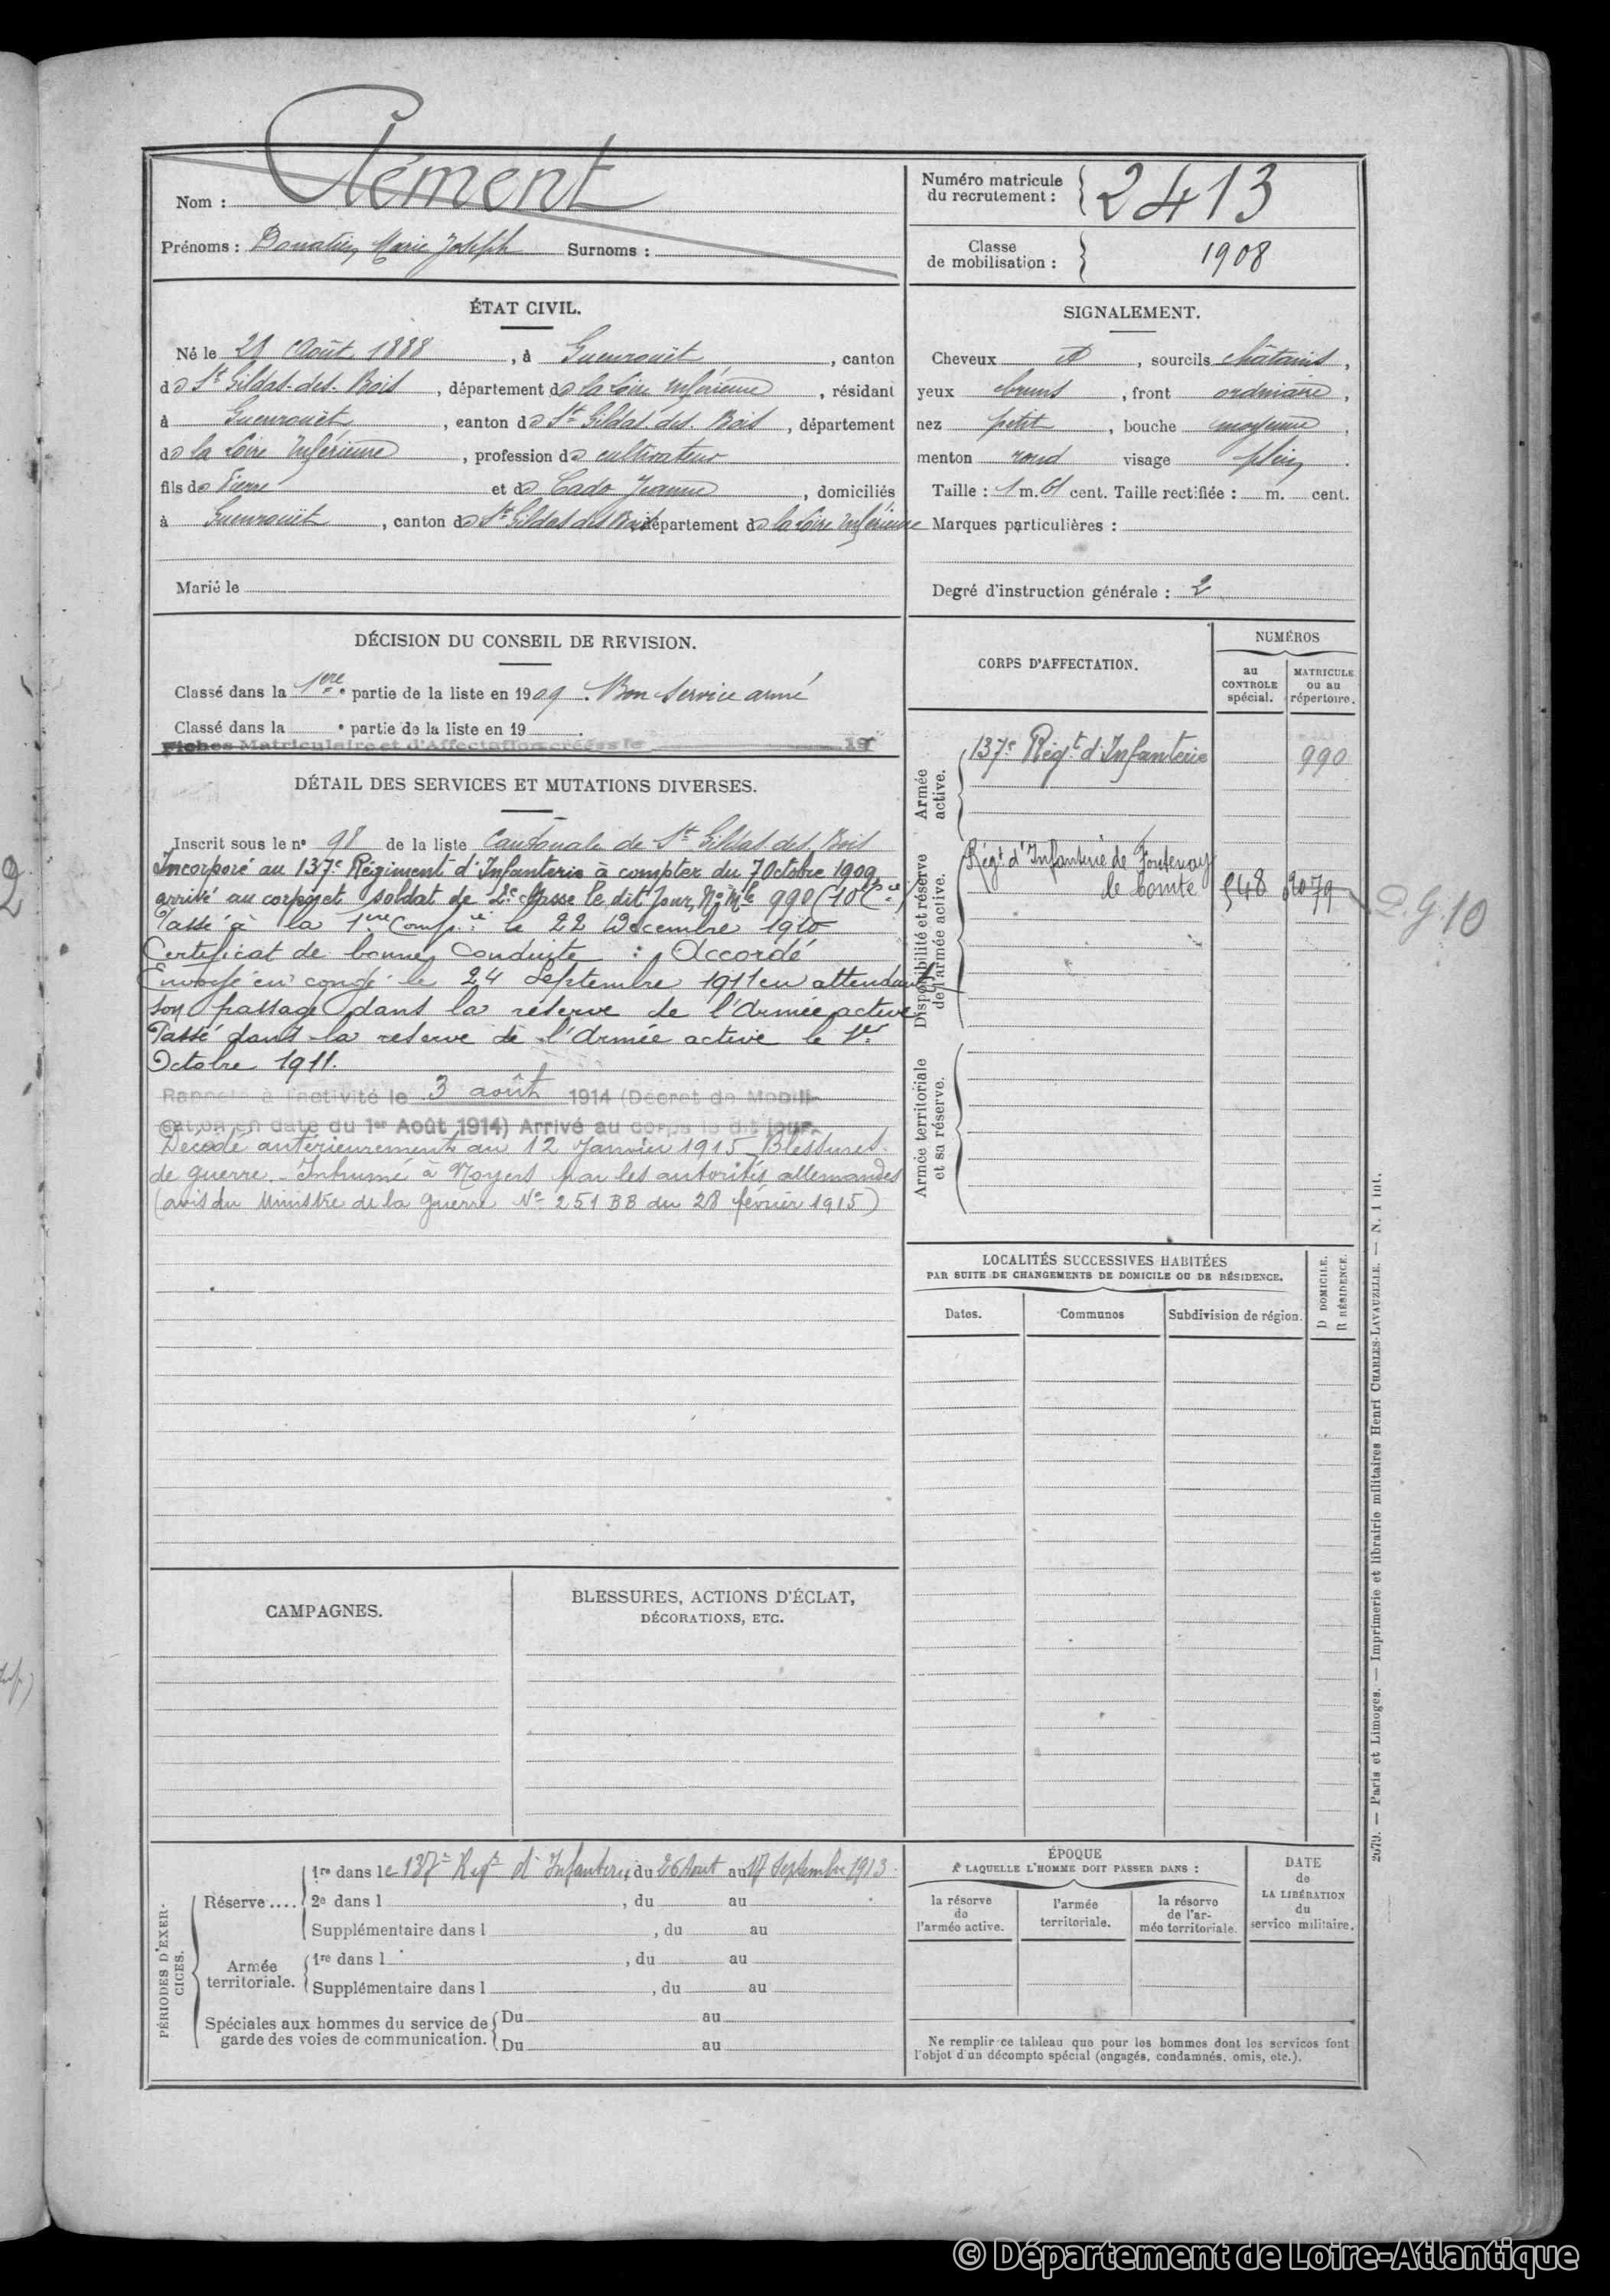 Nom : Clément
Prénoms : Donatien, Marie Joseph Surnoms :
Numéro matricule
du recrutement : 2413
Classe
de mobilisation : 1908
ÉTAT CIVIL.
Né le 29 Août 1888, à Guenrouët, canton
de St Gildas-des-Bois, département de la Loire Inférieure, résidant
à Guenrouët, canton de St Gildas-des-Bois, département
de la Loire Inférieure, profession de cultivateur
fils de Pierre et de Cado Jeanne, domiciliés
à Guenrouët, canton de St Gildas des Bois, département de la Loire Inférieure
Marié le
SIGNALEMENT.
Cheveux et, sourcils châtains,
yeux bruns, front ordinaire,
nez petit, bouche moyenne,
menton rond visage plein.
Taille : 1 m. 61 cent. Taille rectifiée : m. cent.
Marques particulières :
Degré d'instruction générale : 2
DÉCISION DU CONSEIL DE REVISION.
Classé dans la 1ère partie de la liste en 1909. Bon Service armé
Classé dans la e partie de la liste en 19 .
Fiches Matriculaire et d'Affectation créées le 19
DÉTAIL DES SERVICES ET MUTATIONS DIVERSES.
Inscrit sous le no 98 de la liste Cantonale de St Gildas des Bois
Incorporé au 137e Régiment d'Infanterie à compter du 7 Octobre 1909,
arrivé au corps et soldat de 2e classe le dit jour, No Mle 990 (10e Cie)
Passé à la 1ère Compie le 22 Décembre 1910
Certificat de bonne Conduite : Accordé
Envoyé en congé le 24 Septembre 1911 en attendant
son passage dans la réserve de l'Armée active
Passé dans la réserve de l'Armée active le 1er
Octobre 1911.
Rappelé à l'activité le 3 août 1914 (Décret de Mobili-
sation en date du 1er Août 1914) Arrivé au corps le dit jour.
Décédé antérieurement au 12 Janvier 1915 Blessures
de guerre. Inhumé à Noyers par les autorités allemandes
(avis du Ministre de la Guerre No 251 BB du 28 février 1915)
CORPS D'AFFECTATION.
NUMÉROS
au
CONTROLE
spécial.
MATRICULE
ou au
répertoire.
Armée
active.
137e Régt d'Infanterie 990
Disponibilité et réserve
de l'armée active.
Régt d'Infanterie de Fontenay
le Comte 548 2079
P. G. 10
Armée territoriale
et sa réserve.
LOCALITÉS SUCCESSIVES HABITÉES
PAR SUITE DE CHANGEMENTS DE DOMICILE OU DE RÉSIDENCE.
Dates. Communes Subdivision de région.
D DOMICILE.
R RÉSIDENCE.
CAMPAGNES.
BLESSURES, ACTIONS D'ÉCLAT,
DÉCORATIONS, ETC.
PÉRIODES D'EXER-
CICES.
Réserve....
1re dans le 137e Regt d'Infanterie, du 26 Aout au 17 Septembre 1913
2e dans l , du au
Supplémentaire dans l , du au
Armée
territoriale.
1re dans l , du au
Supplémentaire dans l , du au
Spéciales aux hommes du service de
garde des voies de communication.
Du au
Du au
ÉPOQUE
A LAQUELLE L'HOMME DOIT PASSER DANS :
la réserve
de
l'armée active.
l'armée
territoriale.
la réserve
de l'ar-
mée territoriale.
DATE
de
LA LIBÉRATION
du
service militaire.
Ne remplir ce tableau que pour les hommes dont les services font
l'objet d'un décompte spécial (engagés, condamnés, omis, etc.).
2679. — Paris et Limoges. — Imprimerie et librairie militaires Henri CHARLES-LAVAUZELLE. — N. 1 int.
© Département de Loire-Atlantique